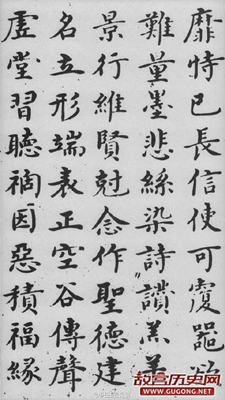 靡恃已長信使可覆器欲
難量墨悲絲染詩讃羔羊
景行維賢尅念作聖德建
名立形端表正空谷傳聲
虛堂習聽禍因惡積福緣
故宫历史网
www.GUGONG.net